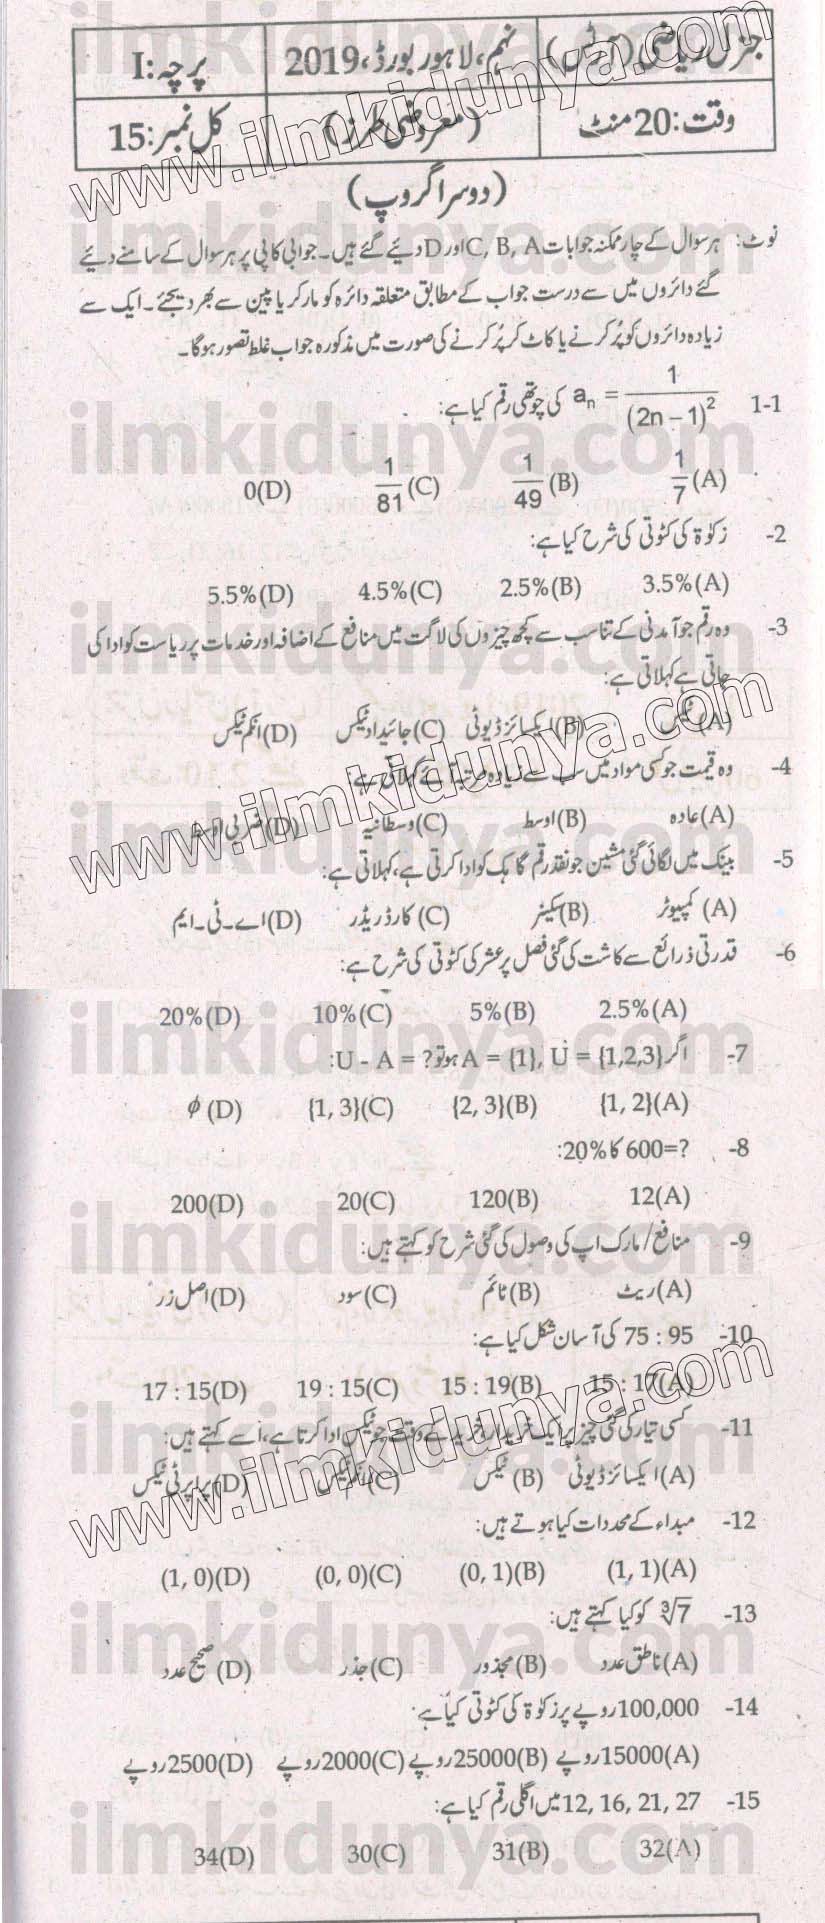 جنرل ریاضی (آرٹس) نہم، لاہور بورڈ، 2019 پرچہ: I
وقت: 20 منٹ (معروضی طرز) کل نمبر: 15
(دوسرا گروپ)
نوٹ: ہر سوال کے چار ممکنہ جوابات C, B, A اور D دیئے گئے ہیں۔ جوابی کاپی پر ہر سوال کے سامنے دیئے
گئے دائروں میں سے درست جواب کے مطابق متعلقہ دائرہ کو مارکر یا پین سے بھر دیجئے۔ ایک سے
زیادہ دائروں کو پُر کرنے یا کاٹ کر پُر کرنے کی صورت میں مذکورہ جواب غلط تصور ہوگا۔
1-1 aₙ = 1/(2n − 1)² کی چوتھی رقم کیا ہے:
(A) 1/7 (B) 1/49 (C) 1/81 (D) 0
2- زکوٰۃ کی کٹوتی کی شرح کیا ہے:
(A) 3.5% (B) 2.5% (C) 4.5% (D) 5.5%
3- وہ رقم جو آمدنی کے تناسب سے کچھ چیزوں کی لاگت میں منافع کے اضافہ اور خدمات پر ریاست کو ادا کی
جاتی ہے کہلاتی ہے:
(A) ٹیکس (B) ایکسائز ڈیوٹی (C) جائیداد ٹیکس (D) انکم ٹیکس
4- وہ قیمت جو کسی مواد میں سب سے زیادہ مرتبہ آئے کہلاتی ہے:
(A) عادہ (B) اوسط (C) وسطانیہ (D) ضربی اوسط
5- بینک میں لگائی گئی مشین جو نقد رقم گاہک کو ادا کرتی ہے، کہلاتی ہے:
(A) کمپیوٹر (B) سکینر (C) کارڈ ریڈر (D) اے۔ٹی۔ایم
6- قدرتی ذرائع سے کاشت کی گئی فصل پر عشر کی کٹوتی کی شرح ہے:
(A) 2.5% (B) 5% (C) 10% (D) 20%
7- اگر U = {1,2,3}, A = {1} ہو تو U - A = ?:
(A) {1, 2} (B) {2, 3} (C) {1, 3} (D) ϕ
8- 600 کا 20%=?:
(A) 12 (B) 120 (C) 20 (D) 200
9- منافع/مارک اپ کی وصول کی گئی شرح کو کہتے ہیں:
(A) ریٹ (B) ٹائم (C) سود (D) اصل زر
10- 75 : 95 کی آسان شکل کیا ہے:
(A) 15 : 17 (B) 15 : 19 (C) 19 : 15 (D) 17 : 15
11- کسی تیار کی گئی چیز پر ایک خریدار خرید کے وقت جو ٹیکس ادا کرتا ہے، اُسے کہتے ہیں:
(A) ایکسائز ڈیوٹی (B) ٹیکس (C) انکم ٹیکس (D) پراپرٹی ٹیکس
12- مبداء کے محددات کیا ہوتے ہیں:
(A) (1, 1) (B) (0, 1) (C) (0, 0) (D) (1, 0)
13- ∛7 کو کیا کہتے ہیں:
(A) ناطق عدد (B) مجذور (C) جذر (D) صحیح عدد
14- 100,000 روپے پر زکوٰۃ کی کٹوتی کیا ہے
(A) 15000 روپے (B) 25000 روپے (C) 2000 روپے (D) 2500 روپے
15- 12, 16, 21, 27 میں اگلی رقم کیا ہے:
(A) 32 (B) 31 (C) 30 (D) 34
www.ilmkidunya.com
www.ilmkidunya.com
www.ilmkidunya.com
ilmkidunya.com